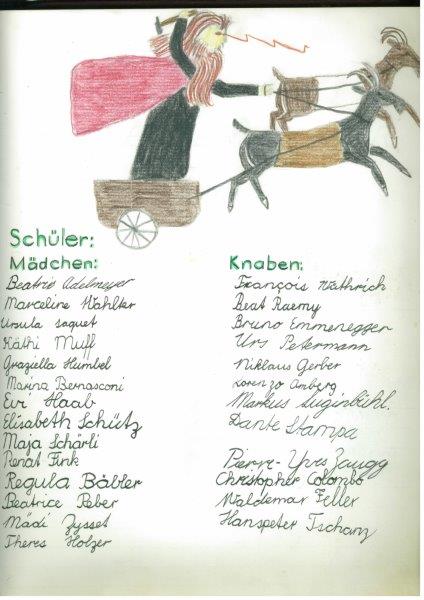 Schüler:
Mädchen:
Beatrice Adelmeyer
Marceline Wahlter
Ursula Jaquet
Käthi Muff
Graziella Humbel
Marina Bernasconi
Evi Haab
Elisabeth Schütz
Maja Schärli
Renat Fink
Regula Bäbler
Beatrice Reber
Mädi Zysset
Theres Holzer
Knaben:
François Wathrich
Beat Raemy
Bruno Emmenegger
Urs Petermann
Niklaus Gerber
Lorenzo Amberg
Markus Luginbühl.
Dante Stampa
Pierre-Yves Zaugg
Christopher Colombo
Waldemar Feller
Hanspeter Tschanz